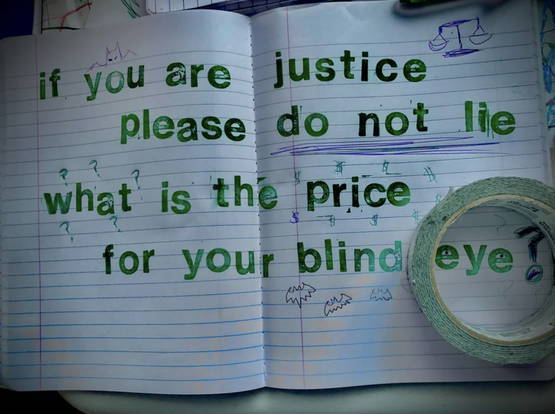 if you are justice
please do not lie
what is the price
for your blind eye?